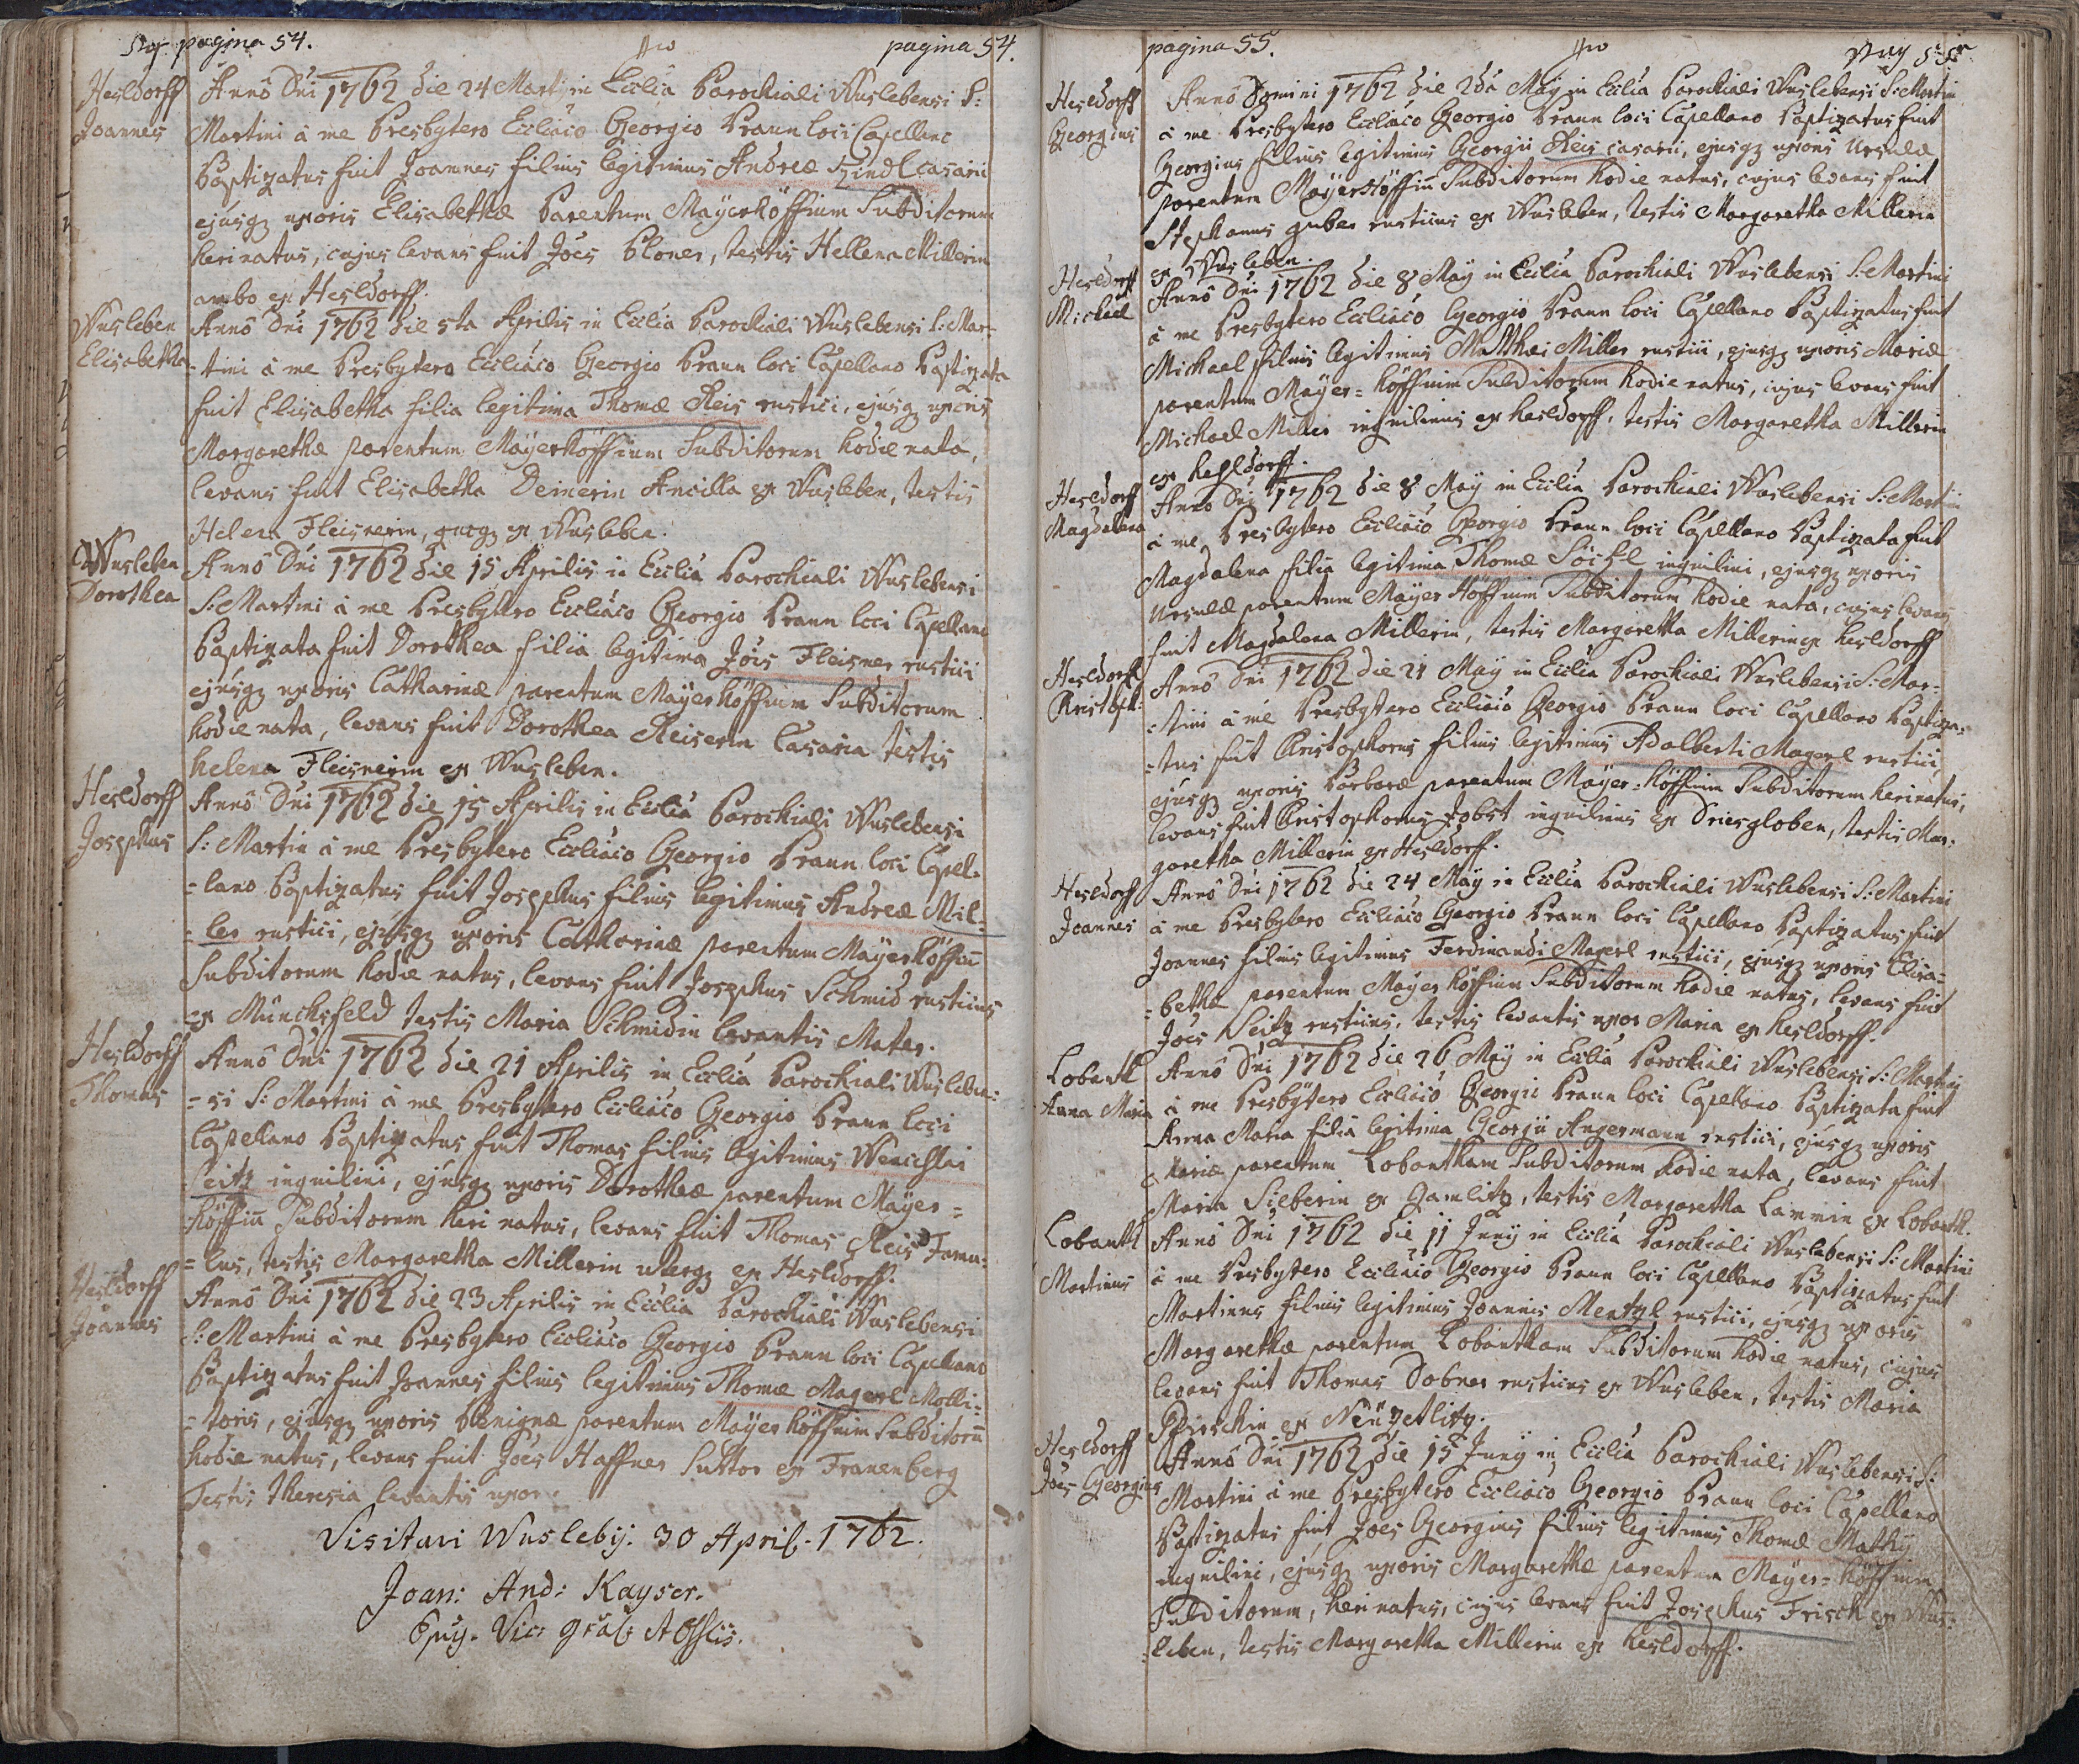 pagina 54.
pagina 54.
Hesldorff
Joannes
Annô Dni 1762 die 24 Martij in Ecclia Parochiali Wuslebensi S:
Martini à me Presbytero Eccliaco Georgio Praun loci Capellano
Baptizatus fuit Joannes filius legitimus Andreæ Zindl casarii
ejusq uxoris Elisabethæ parentum Mayerhöffium Subditorum
heri natus, cujus levans fuit Joës Ploner, testis Hellena Millerin
ambo ex Hesldorff.
Wusleben
Elisabetha
Annô Dni 1762 die 5ta Aprilis in Ecclia Parochiali Wuslebensi S: Mar-
-tini à me Presbytero Eccliaco Georgio Praun loci Capellano Baptizata
fuit Elisabetha filia legitima Thomæ Reis rustici, ejusq uxoris
Margarethæ parentum Mayerhöffium Subditorum hodie nata,
levans fuit Elisabetha Deimerin Ancilla ex Wusleben, testis
Helena Fleisnerin, ex Wusleben.
Wusleben
Dorothea
Annô Dni 1762 die 15 Aprilis in Ecclia Parochiali Wuslebensi
S: Martini à me Presbytero Eccliaco Georgio Praun loci Capellano
Baptizata fuit Dorothea filia legitima Jöis Fleisner rustici
ejusq uxoris Catharinæ parentum Mayerhöffium Subditorum
hodie nata, levans fuit Dorothea Reiserin Casaria testis
helena Fleisnerin ex Wusleben.
Hesldorff
Josephus
Annô Dni 1762 die 15 Aprilis in Ecclia Parochiali Wuslebensi
S: Martin à me Presbytero Eccliaco Georgio Praun loci Capel-
-lano Baptizatus fuit Josephus filius legitimus Andreæ Mil-
-ler rustici, ejusq uxoris Catharinæ parentum Mayerhöffiu
Subditorum hodie natus, levans fuit Josephus Schmid rusticus
ex Münchsfeld testis Maria Schmidin levantis Mater.
Hesldorff
Thomas
Annô Dni 1762 die 21 Aprilis in Ecclia Parochiali Wusleben-
-si S: Martini à me Presbytero Eccliaco Georgio Praun loci
Capellano Baptizatus fuit Thomas filius legitimus Wenceslai
Seitz inquilini, ejusq uxoris Dorotheæ parentum Mayer=
höffiu Subditorum heri natus, levans fuit Thomas Reis Famu-
-lus, testis Margaretha Millerin uterq ex Hesldorff.
Hesldorff
Joannes
Annô Dni 1762 die 23 Aprilis in Ecclia Parochiali Wuslebensi
S: Martini à me Presbytero Eccliaco Georgio Praun loci Capellano
Baptizatus fuit Joannes filius legitimus Thomæ Magerl Molli-
-toris, ejusq uxoris Benignæ parentum Mayerhöffium Subditoru
hodie natus, levans fuit Joës Haffner Suttor ex Franenberg
Testis theresia levantis uxor.
Visitavi Wuslebij. 30 April. 1762.
Joan: And: Kayser.
Vic:
pagina 55.
Hesldorff
Georgius
Annô Domini 1762 die 2da Maÿ in Ecclia Parochiali Wuslebensi S: Martini
à me Presbytero Eccliaco Georgio Praun loci Capellano Baptizatus fuit
Georgius filius legitimus Georgii Reis casarii, ejusq uxoris Ursulæ
parentum Mayerhöffiu Subditorum hodie natus, cujus levans fuit
Stephanus guber rusticus ex Wusleben, testis Margaretha Millerin
ex Wusleben.
Hesldorff
Michael
Annô Dni 1762 die 8 Maÿ in Ecclia Parochiali Wuslebensi S: Martini
à me Presbytero Eccliaco Georgio Praun loci Capellano Baptizatus fuit
Michael filius legitimus Matthæi Miller rustici, ejusq uxoris Mariæ
parentum Mayer=höffium Subditorum hodie natus, cujus levans fuit
Michael Miller inquilinus ex hesldorff, testis Margaretha Millerin
ex hesldorff.
Hesldorff
Magdalena
Annô Dni 1762 die 8 Maÿ in Ecclia Parochiali Wuslebensi S: Martini
à me Presbytero Eccliaco Georgio Praun loci Capellano Baptizata fuit
Magdalena filia legitima Thomæ inquilini, ejusq uxoris
Ursulæ parentum Mayerhöffium Subditorum hodie nata, cujus levans
fuit Magdalena Millerin, testis Margaretha Millerin ex hesldorff
Hesldorff
Christoph:
Annô Dni 1762 die 21 Maÿ in Ecclia Parochiali Wuslebensi S: Mar-
-tini à me Presbytero Eccliaco Georgio Praun loci Capellano Baptiza-
-tus fuit Christophorus filius legitimus Adalberti Magerl rustici,
ejusq uxoris Barbaræ parentum Mayer=höffium Subditorum heri natus,
levans fuit Christophorus Jobst inquilinus ex Driesgloben, testis Mar-
garetha Millerin ex Hesldorff.
Hesldorff
Joannes
Annô Dni 1762 die 24 Maÿ in Ecclia Parochiali Wuslebensi S: Martini
à me Presbytero Eccliaco Georgio Praun loci Capellano Baptizatus fuit
Joannes filius legitimus Ferdinandi Magerl rustici, ejusq uxoris Elisa-
-bethæ parentum Mayerhöffium Subditorum hodie natus, levans fuit
Joës Seitz rusticus, testis levantis uxor Maria ex hesldorff.
Lobantl
Anna Maria
Annô Dni 1762 die 26 Maÿ in Ecclia Parochiali Wuslebensi S: Martini
à me Presbytero Eccliaco Georgio Praun loci Capellano Baptizata fuit
Anna Maria filia legitima Georgii Angermann rustici, ejusq uxoris
Mariæ parentum Lobantham Subditorum hodie nata, levans fuit
Maria Sieberin ex Gamlitz, testis Margaretha Lammin ex Lobantl.
Lobantl
Martinus
Annô Dni 1762 die 11 Junÿ in Ecclia Parochiali Wuslebensi S: Martini
à me Presbytero Eccliaco Georgio Praun loci Capellano Baptizatus fuit
Martinus filius legitimus Joannis Mentzl rustici, ejusq uxoris
Margarethæ parentum Lobantham Subditorum hodie natus, cujus
levans fuit Thomas Dobner rusticus ex Wusleben, testis Maria
ex Neüzetlitz.
Hesldorff
Joës Georgius
Annô Dni 1762 die 15 Junÿ in Ecclia Parochiali Wuslebensi S:
Martini à me Presbytero Eccliaco Georgio Praun loci Capellano
Baptizatus fuit Joës Georgius filius legitimus Thomæ Mathÿ
inquilini, ejusq uxoris Margarethæ parentum Mayer=höffium
Subditorum, heri natus, cujus levans fuit Josephus Frisch ex Wus-
-leben, testis Margaretha Millerin ex hesldorff.